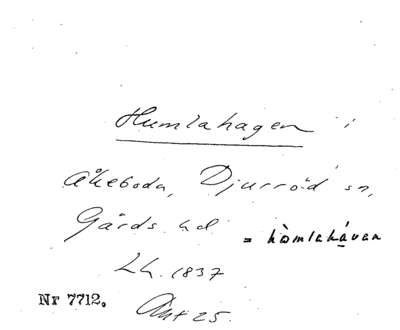 Humlahagen i
Åkeboda, Djurröd sn,
Gårds hd = hòmlahávan
Lh. 1837
Nr 7712. Akt 25